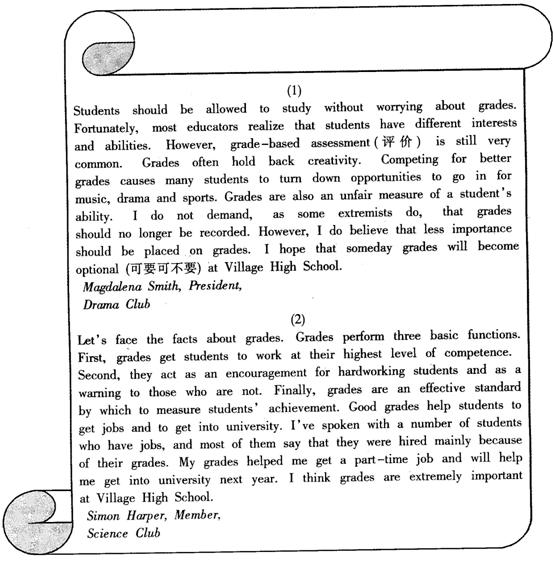 (1)
Students should be allowed to study without worrying about grades.
Fortunately, most educators realize that students have different interests
and abilities. However, grade-based assessment(评价) is still very
common. Grades often hold back creativity. Competing for better
grades causes many students to turn down opportunities to go in for
music, drama and sports. Grades are also an unfair measure of a student's
ability. I do not demand, as some extremists do, that grades
should no longer be recorded. However, I do believe that less importance
should be placed on grades. I hope that someday grades will become
optional (可要可不要) at Village High School.
Magdalena Smith, President,
Drama Club
(2)
Let's face the facts about grades. Grades perform three basic functions.
First, grades get students to work at their highest level of competence.
Second, they act as an encouragement for hardworking students and as a
warning to those who are not. Finally, grades are an effective standard
by which to measure students' achievement. Good grades help students to
get jobs and to get into university. I've spoken with a number of students
who have jobs, and most of them say that they were hired mainly because
of their grades. My grades helped me get a part-time job and will help
me get into university next year. I think grades are extremely important
at Village High School.
Simon Harper, Member,
Science Club